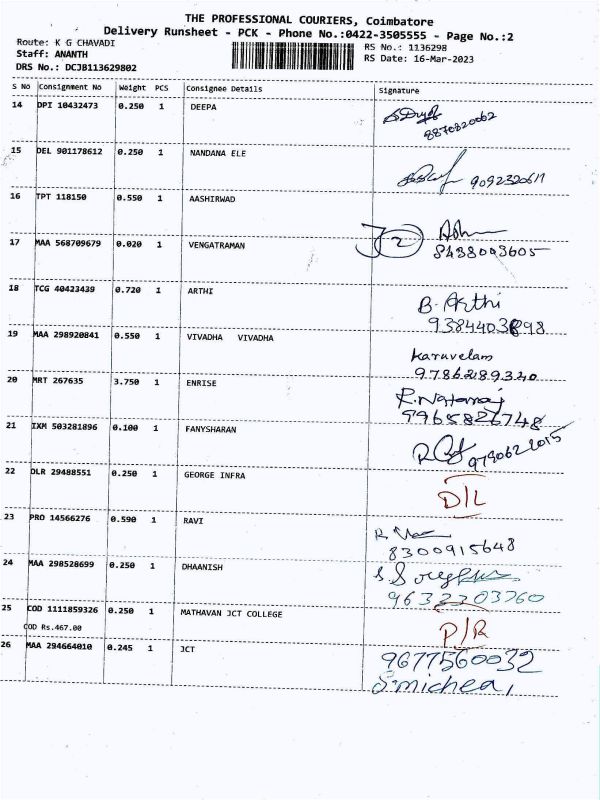 THE PROFESSIONAL COURIERS, Coimbatore
Delivery Runsheet - PCK - Phone No.:0422-3505555 - Page No.:2
Route: K G CHAVADI
Staff: ANANTH
DRS No.: DCJB113629802
RS No.: 1136298
RS Date: 16-Mar-2023
S No Consignment No Weight PCS Consignee Details Signature
14 DPI 10432473 0.250 1 DEEPA
8870820062
15 DEL 901178612 0.250 1 NANDANA ELE
9092320611
16 TPT 118150 0.550 1 AASHIRWAD
17 MAA 568709679 0.020 1 VENGATRAMAN
2
8438003605
18 TCG 40423439 0.720 1 ARTHI
B. Arthi
9384403898
19 MAA 298920841 0.550 1 VIVADHA VIVADHA
Karuvelam
9786289340
20 MRT 267635 3.750 1 ENRISE
R. Nataraj
9965826748
21 IXM 503281896 0.100 1 FANYSHARAN
9790622015
22 DLR 29488551 0.250 1 GEORGE INFRA
D/L
23 PRO 14566276 0.590 1 RAVI
8300915648
24 MAA 298528699 0.250 1 DHAANISH
9632203760
25 COD 1111859326 0.250 1 MATHAVAN JCT COLLEGE
COD Rs.467.00
P/R
26 MAA 294664010 0.245 1 JCT
9677560032
S. micheal